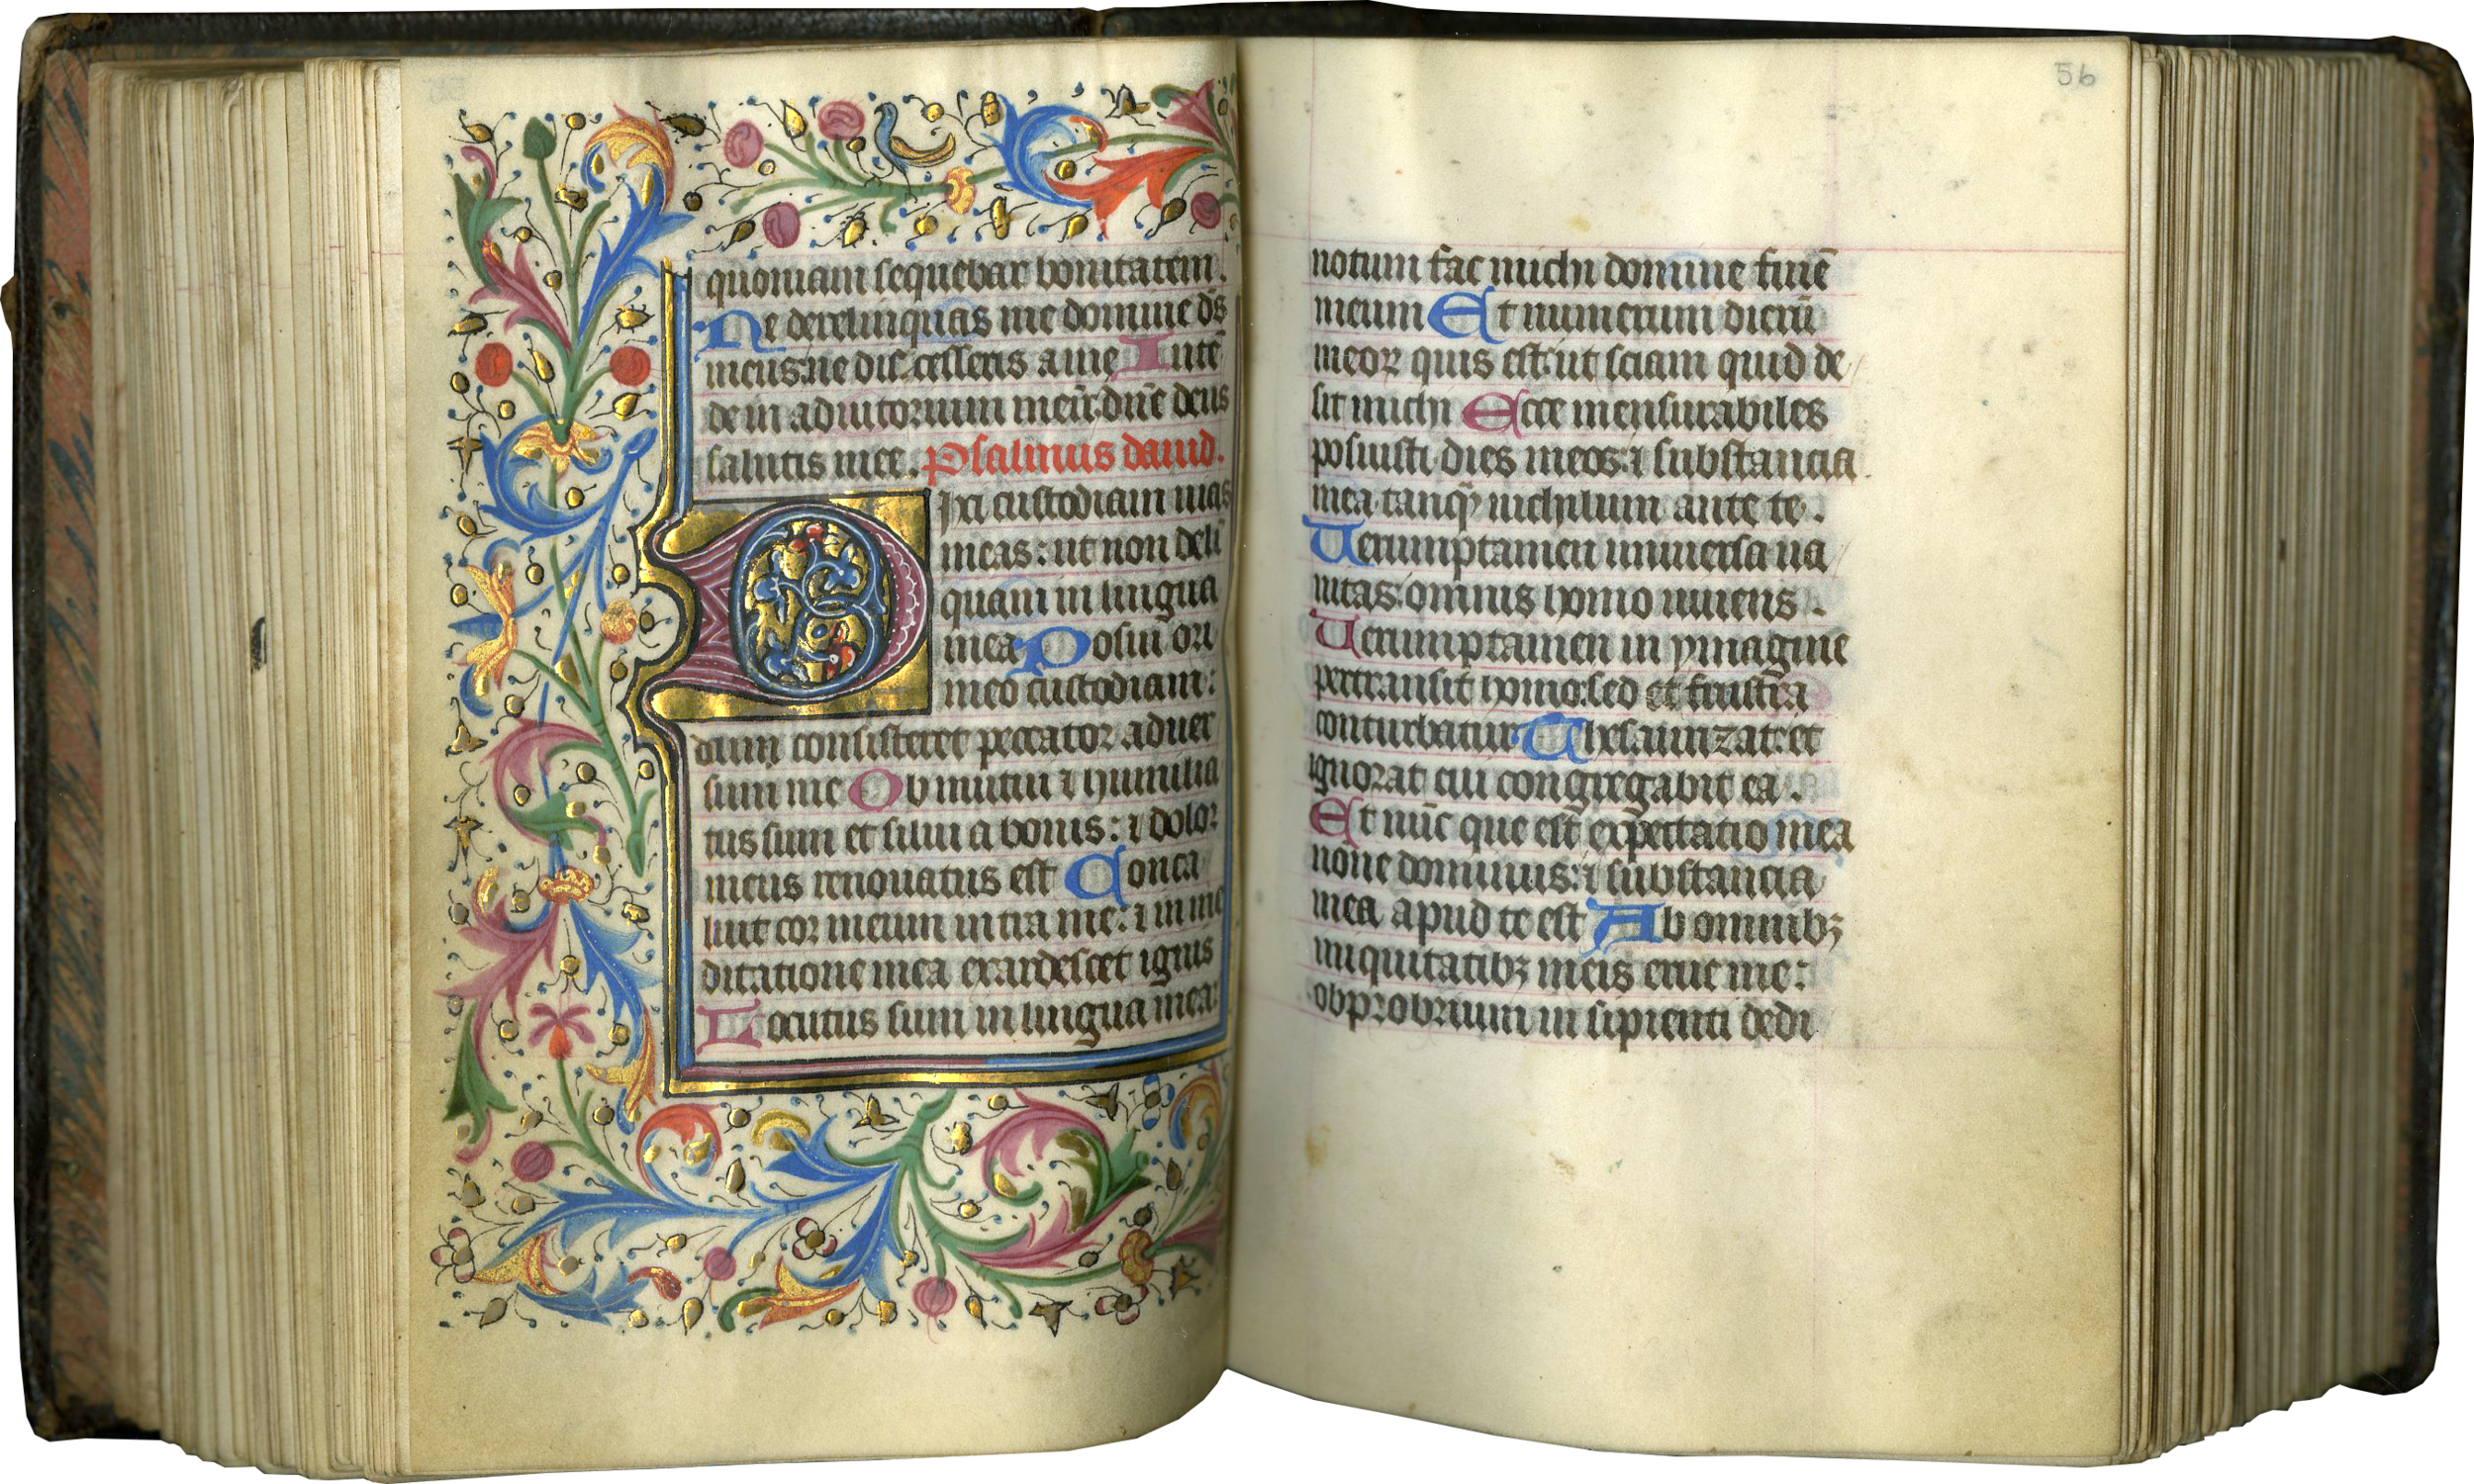 quoniam sequebar bonitatem.
Ne derelinquas me domine dn̄s
meus: ne discesseris a me Inte͂
de in adiutorium meū: dn̄e deus
salutis mee. Psalmus dauid.
Dixi custodiam uias
meas: ut non deli͂
quam in lingua
mea Posui ori
meo custodiam:
dum consisteret peccator aduer
sum me Obmutui ⁊ humilia
tus sum et silui a bonis: ⁊ dolor
meus renouatus est Conca
luit cor meum intra me: ⁊ in me
ditatione mea exardescet ignis
Locutus sum in lingua mea:
56
notum fac michi domine finē
meum Et numerum dierū
meoꝝ quis est: ut sciam quid de
sit michi Ecce mensurabiles
posuisti dies meos: ⁊ substancia
mea tanqͣ nichilum ante te.
Uerumptamen uniuersa ua
nitas: omnis homo uiuens.
Uerumptamen in ymagine
pertransit homo: sed et frustra
conturbatur Thesaurizat: et
ignorat cui congregabit ea.
Et nūc que est expectatio mea
none dominus: ⁊ substancia
mea apud te est Ab omnibꝫ
iniquitatibꝫ meis erue me:
obprobrium insipienti dedi